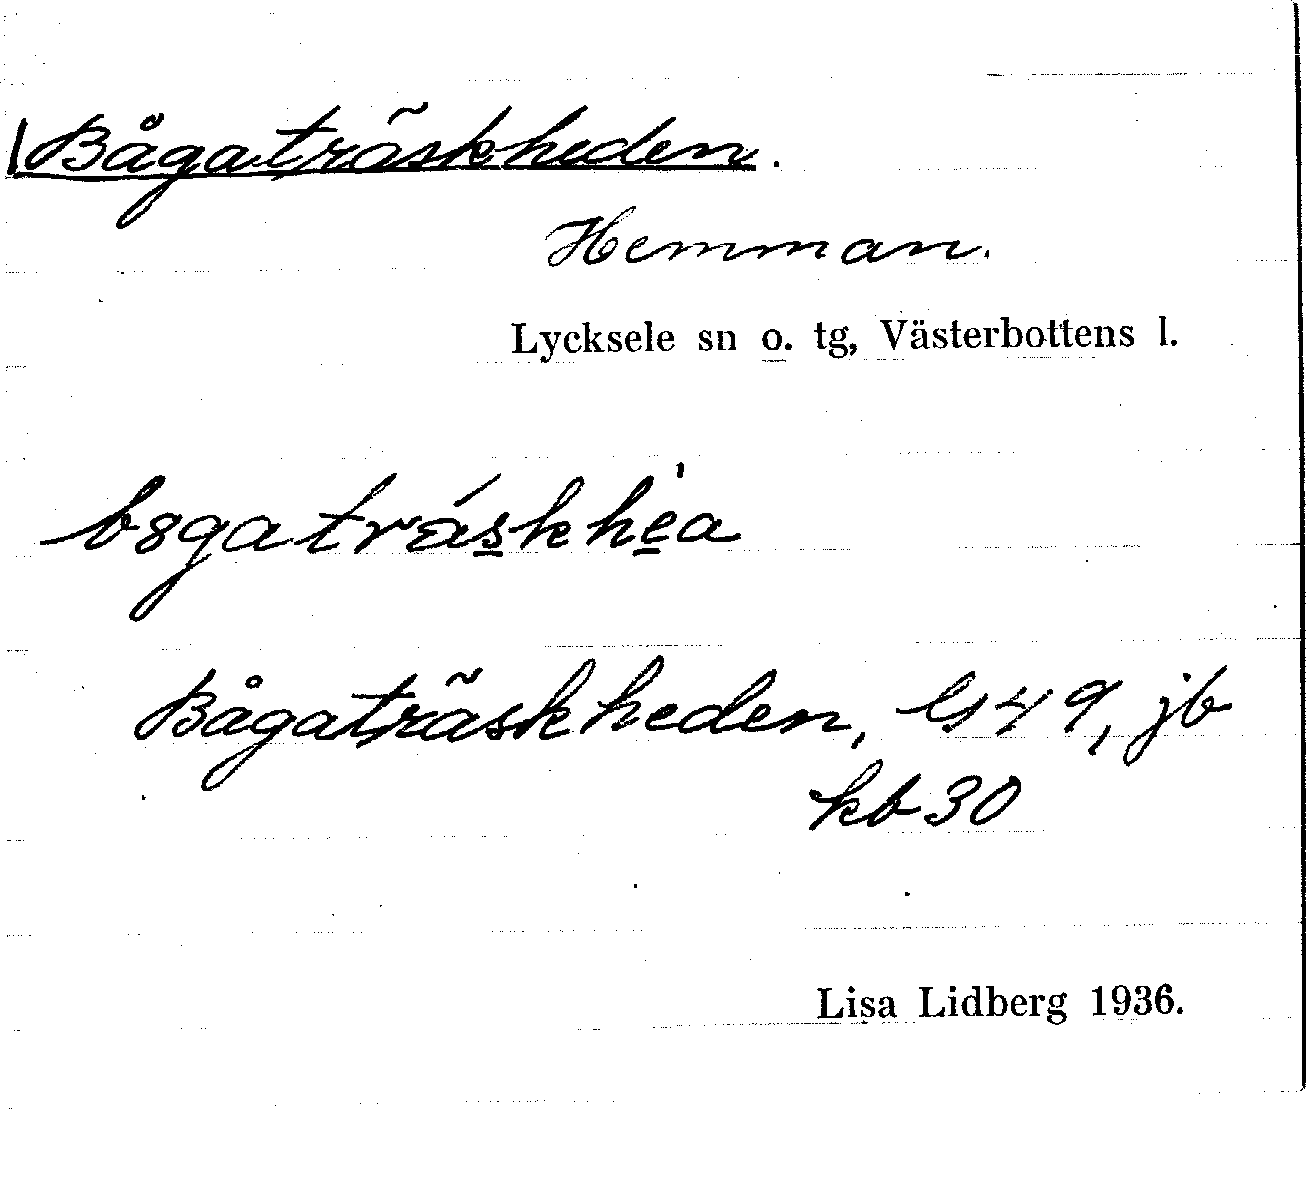 Bågaträskheden.
Hemman.
Lycksele sn o. tg, Västerbottens l.
Bågaträskheden, 49, jb
kb 30
Lisa Lidberg 1936.